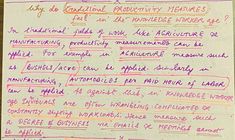 Why do traditional PRODUCTIVITY MEASURES
fail in the KNOWLEDGE WORKER age?
In traditional fields of work, like AGRICULTURE or
MANUFACTURING, productivity measurements can be
applied. For example in AGRICULTURE measure such
as BUSHELS/ACRE can be applied. Similarly in
manufacturing, AUTOMOBILES PER PAID HOUR of LABOR
can be applied. As against this, in KNOWLEDGE WORKER
age individuals are often complicated or
constantly shifting WORKLOADS. Hence measure such
a DEGREE of BUSYNESS via EMAILS or MEETINGS cannot
be applied.